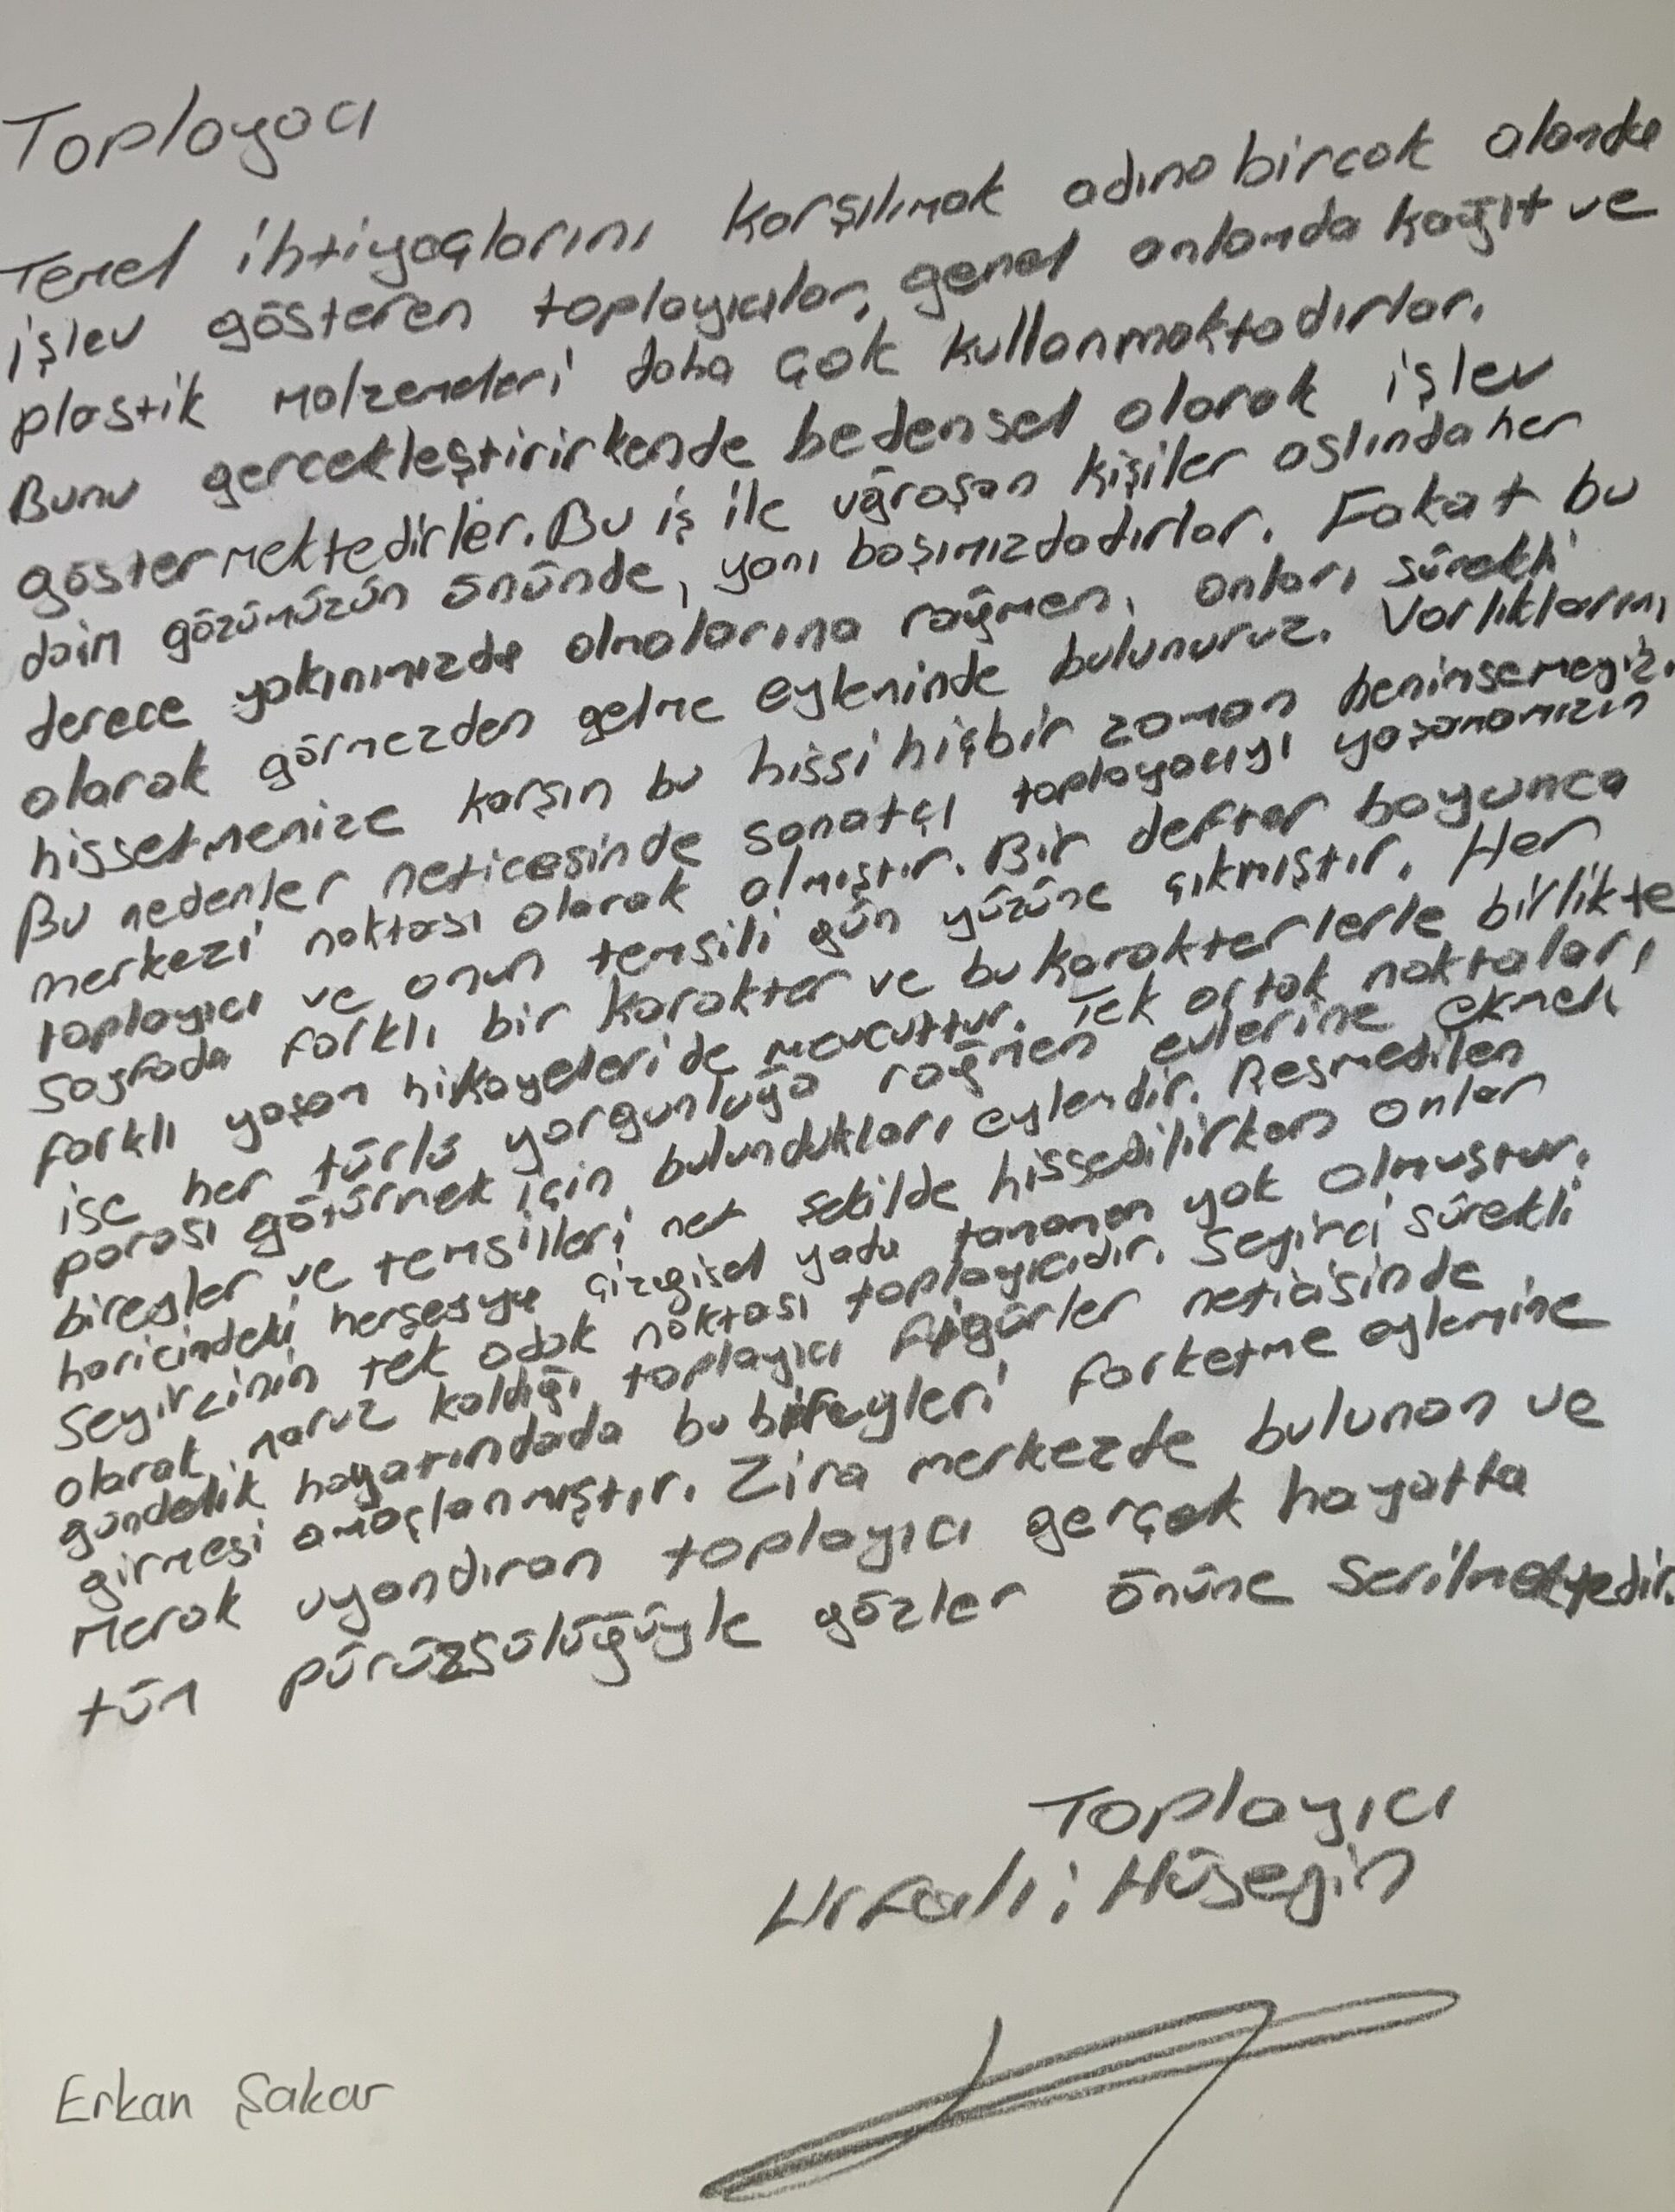 Toplayacı
Temel ihtiyaçlarını karşılımak adına bircok alanda
işlev gösteren toplayıcılar, genel anlamda kağıt ve
plastik malzemeleri daha çok kullanmaktadırlar.
Bunu gercekleştirirkende bedensel olarak işlev
göstermektedirler. Bu iş ile uğraşan kişiler aslında her
daim gözümüzün önünde, yanı başımızdadırlar. Fakat bu
derece yakınımızda olmalarına rağmen, onları sürekli
olarak görmezden gelme eyleminde bulunuruz. Varlıklarını
hissetmemize karşın bu hissi hiçbir zaman benimsemeyiz.
Bu nedenler neticesinde sanatçı toplayacıyı yaşamamızın
merkezi noktası olarak almıştır. Bir defter boyunca
toplayıcı ve onun temsili gün yüzüne çıkmıştır. Her
sayfada farklı bir karakter ve bu karakterlerle birlikte
farklı yaşam hikayeleri de mevcuttur. Tek ortak noktaları
ise her türlü yorgunluğa rağmen evlerine ekmek
parası götürmek için bulundukları eylemdir. Resmedilen
bireyler ve temsilleri net şekilde hissedilirken onlar
haricindeki herşeyye çizgisel yada tamamen yok olmuştur.
Seyircinin tek odak noktası toplayıcıdır. Seyirci sürekli
olarak maruz kaldığı toplayıcı figürler neticisinde
gündelik hayatındada bu bireyleri farketme eylemine
girmesi amaçlanmıştır. Zira merkezde bulunan ve
merak uyandıran toplayıcı gerçek hayatta
tüm pürüzsülüğüyle gözler önüne serilmektedir.
Toplayıcı
Urfalı; Hüseyin
Erkan Şakar